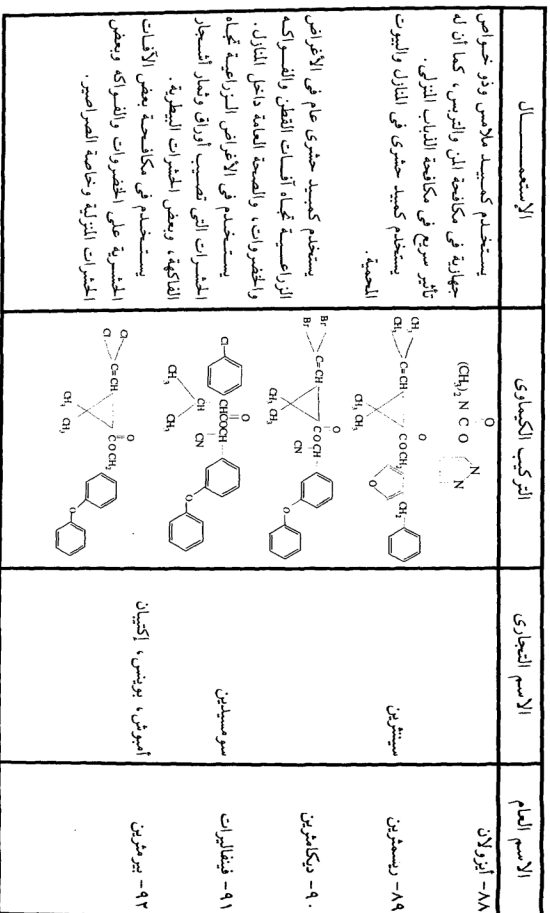 الاسم العام
الاسم التجارى
التركيب الكيماوى
الإستعمـــــال
٨٨- أيزولان
O
(CH3)2 N C O
N
N
يستخدم كمبيد ملامس وذو خواص
جهازية فى مكافحة المن والتربس، كما أن له
تأثير سريع فى مكافحة الذباب المنزلى.
٨٩- ريسمثرين
سينثرين
CH3
CH3
C=CH
O
C O CH2
CH2
O
CH3 CH3
يستخدم كمبيد حشرى فى المنازل والبيوت
المحمية.
٩٠- ديكامثرين
Br
Br
C=CH
O
C O CH
CN
O
CH3 CH3
يستخدم كمبيد حشرى عام فى الأغراض
الزراعـيـة تجاه آفـات القطن والفـواكـه
والخضروات، والصحة العامة داخل المنازل.
٩١- فينفاليرات
سومسيدين
Cl
O
CHCOCH
CN
O
CH
CH3
CH3
يستـخـدم فى الأغراض الـزراعـيـة تجـاه
الحشـرات التى تصـيب أوراق وثمار أشـجار
الفاكهة، وبعض الحشرات البيطرية.
٩٢- بيرمثرين
أمبوش، بوينس، إكتيبان
Cl
Cl
C=CH
O
C O CH2
O
CH3 CH3
يسـتـخـدم فى مكافـحـة بعض الآفـات
الحشـرية على الخضروات والفـواكه وبعض
الحشرات المنزلية وخاصة الصراصير.